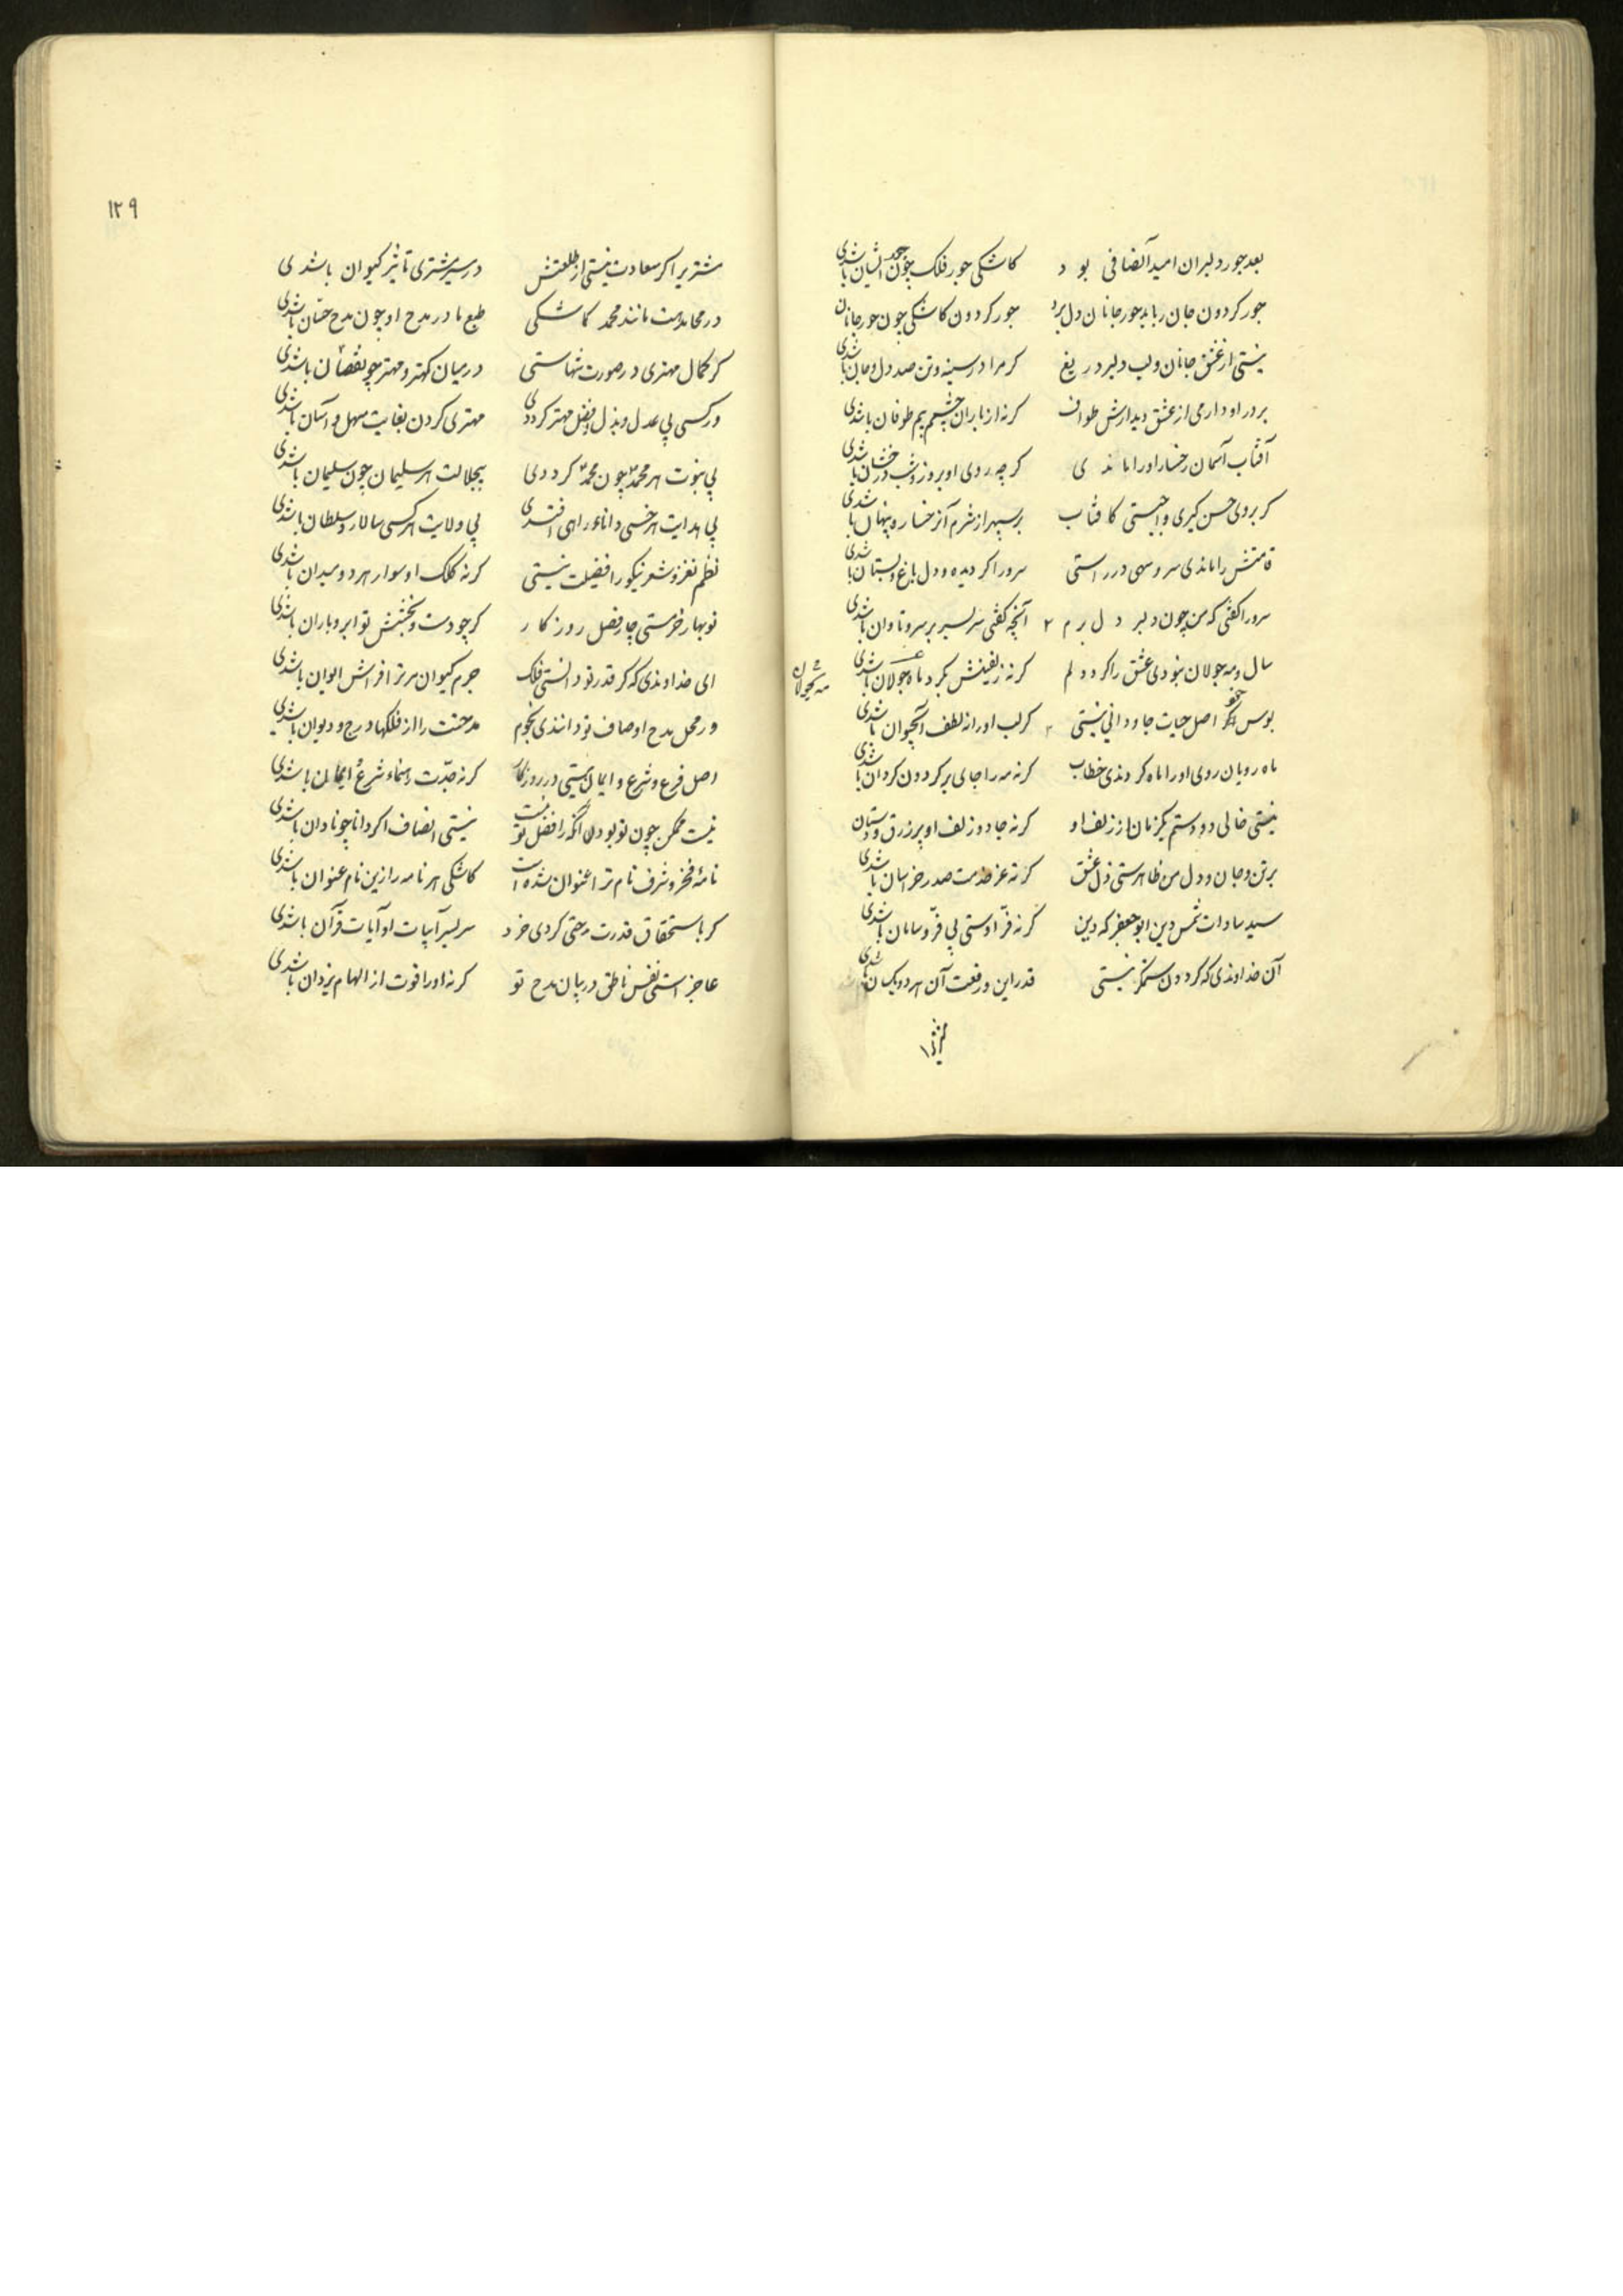 بعد جور دلبران امید انصافی بود کاشکی جور فلک چون جور ایشان باشدی
جور کردون جان رباید جور جانان دل برد جور کردون کاشکی چون جور جانان
نیستی از عشق جانان و لب دلبر دریغ کر مرا در سینه و تن صد دل و جان باشدی
بر در او دارمی از عشق دیدارش طواف کرنه از باران چشمم بیم طوفان باشدی
آفتاب آسمان رخسار او را ماندی کر چه روی او بروز و شب درخشان باشدی
کر بروی حسن کیری واجبستی کافتاب بر سپهر از شرم آن رخساره پنهان باشدی
قامتش را ماندی سرو سهی در راستی سرو را کر دیده و دل باغ و بستان باشدی
سرو را کفتی که من چون دلبر دلبرم ۲ آنچه کفتی سربسر بر سرو تاوان باشدی
سال و مه جولان نبودی عشق را کرد دلم کرنه زلفینش بکرد ماه جولان باشدی
مه بجولان
بوس او کر اصل حیات جاودانی نیستی کر لب او را نه لطف آب حیوان باشدی
ماه رویان روی او را ماه کردندی خطاب کرنه مه را جای بر کردون کردان باشدی
نیستی خالی دو دستم یکزمان از زلف او کرنه جادو زلف او پر زرق و دستان
بر تن و جان و دل من ظاهرستی ذل عشق کرنه عز خدمت صدر خراسان باشدی
سید سادات شمس دین ابو جعفر که دین کرنه فرّ اوستی بی فرّ و سامان باشدی
آن خداوندی که کردون ستمکر نیستی قدر این و رفعت آن هر دو یکسان باشدی
مشتریرا
۱۲۹
مشتریرا کر سعادت نیستی از طلعتش در سیر مشتری تاثیر کیوان باشدی
در محامدست مانند محمد کاشکی طبع ما در مدح او چون مدح حسّان باشدی
کر کمال مهتری در صورت تنهاستی در میان کهتر و مهتر چو نقصان باشدی
ور کسی بی عدل و بذل و فضل مهتر کرددی مهتری کردن بغایت سهل و آسان باشدی
بی نبوت هر محمد چون محمد کرددی بیجلالت هر سلیمان چون سلیمان باشدی
بی هدایت هر خسی دانا و راهی افتدی بی ولایت هر کسی سالار و سلطان باشدی
نظم نغز و شعر نیکو را فضیلت نیستی کرنه کلک او سوار هر دو میدان باشدی
نوبهار خرمستی چار فصل روزکار کر چو دست و بخشش تو ابر و باران باشدی
ای خداوندی که کر قدر تو دانستی فلک جرم کیوان مر ترا فراش ایوان باشدی
ور محل مدح اوصاف تو دانندی نجوم مدحتت را از فلکها درج و دیوان باشدی
اصل فرع و شرع و ایمان نیستی در روزکار کرنه جدّت رهنماء شرع و ایمان باشدی
نیست ممکن چون تو بودن آنکه را فضل تو نیست نیستی انصاف اکر دانا چو نادان باشدی
نامهٔ فخر و شرف نام ترا عنوان شده است کاشکی هر نامه را زین نام عنوان باشدی
کر باستحقاق قدرت مدحتی کردی خرد سربسر آبیات او آیات قرآن باشدی
عاجز استی نفس ناطق در بیان مدح تو کرنه او را قوت از الهام یزدان باشدی